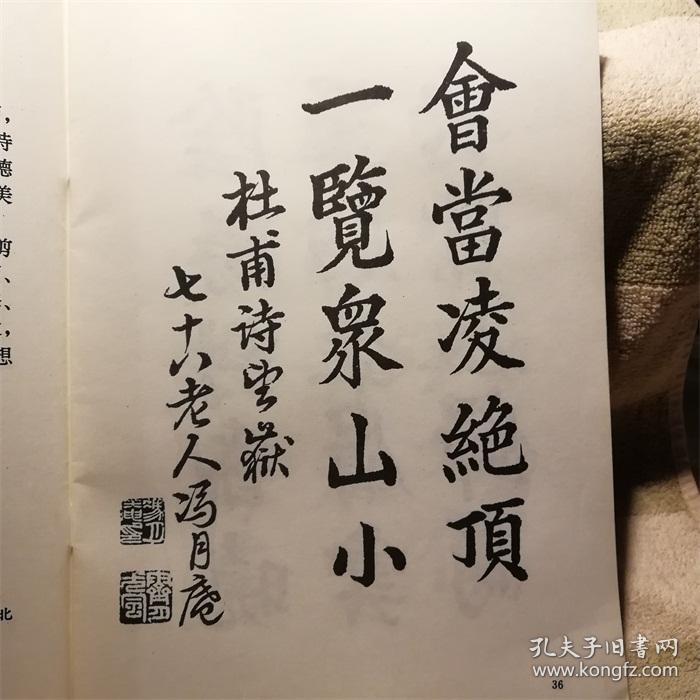 會當凌絕頂
一覽衆山小
杜甫詩望嶽
七十八老人馮月庵
，
诗
德
美
剪
、
、
，
想
北
36
孔夫子旧书网
www.kongfz.com